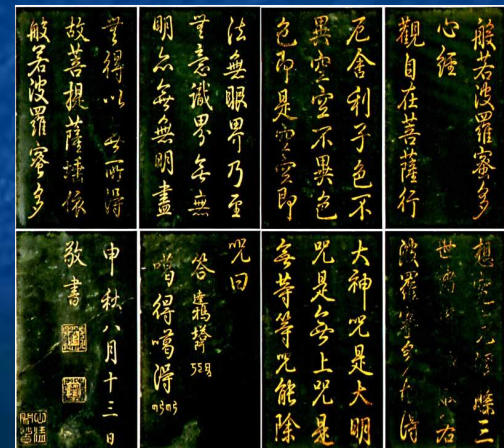 般若波羅蜜多
心經
觀自在菩薩行
厄舍利子色不
異空空不異色
色即是空空即
法無眼界乃至
無意識界無無
明亦無無明盡
無得以無所得
故菩提薩埵依
般若波羅蜜多
想究竟涅槃三
世諸
波羅蜜多故得
大神咒是大明
咒是無上咒是
無等等咒能除
咒曰
答達鴉塔
噶得噶得
申秋八月十三日
敬書